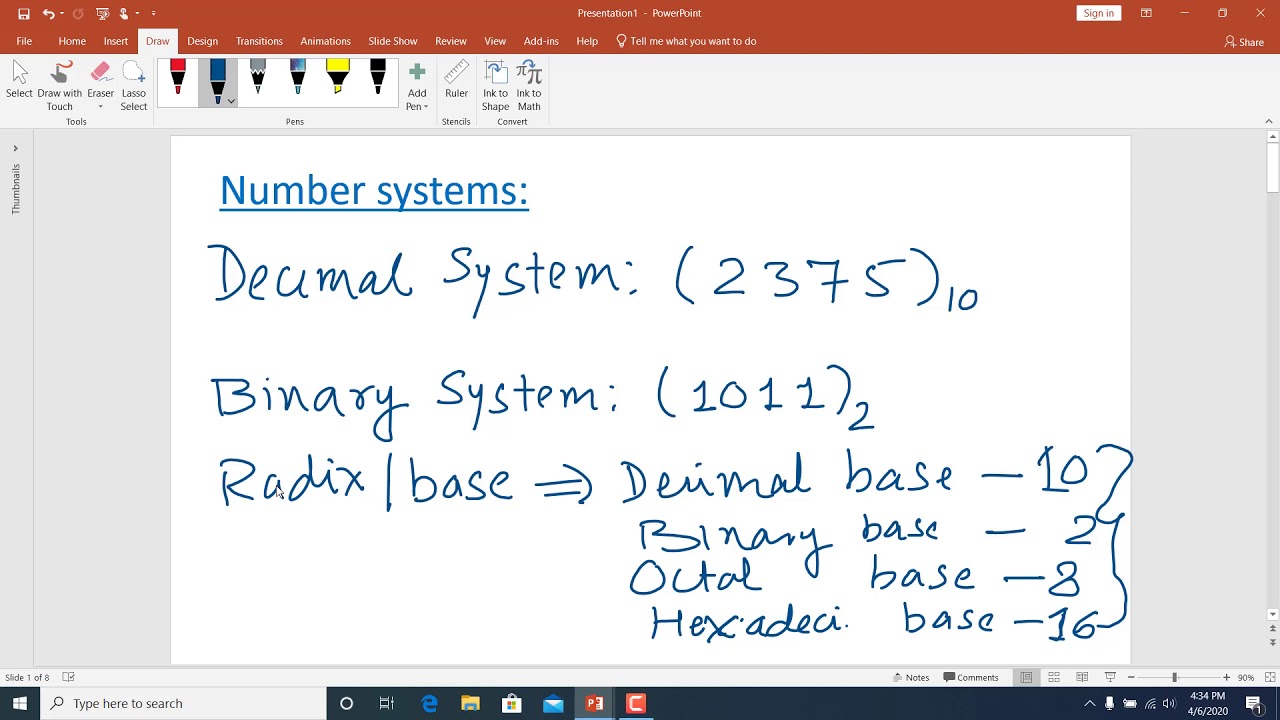 Presentation1 - PowerPoint
Sign in
File Home Insert Draw Design Transitions Animations Slide Show Review View Add-ins Help Tell me what you want to do Share
Select Draw with Touch Eraser Lasso Select Add Pen Ruler Ink to Shape Ink to Math
Tools Pens Stencils Convert
Thumbnails
Number systems:
Decimal System: (2375)10
Binary System: (1011)2
Radix | base ⇒ Decimal base - 10
Binary base - 2
Octal base - 8
Hexadeci. base - 16
Slide 1 of 8 Notes Comments 90%
Type here to search 4:34 PM
4/6/2020